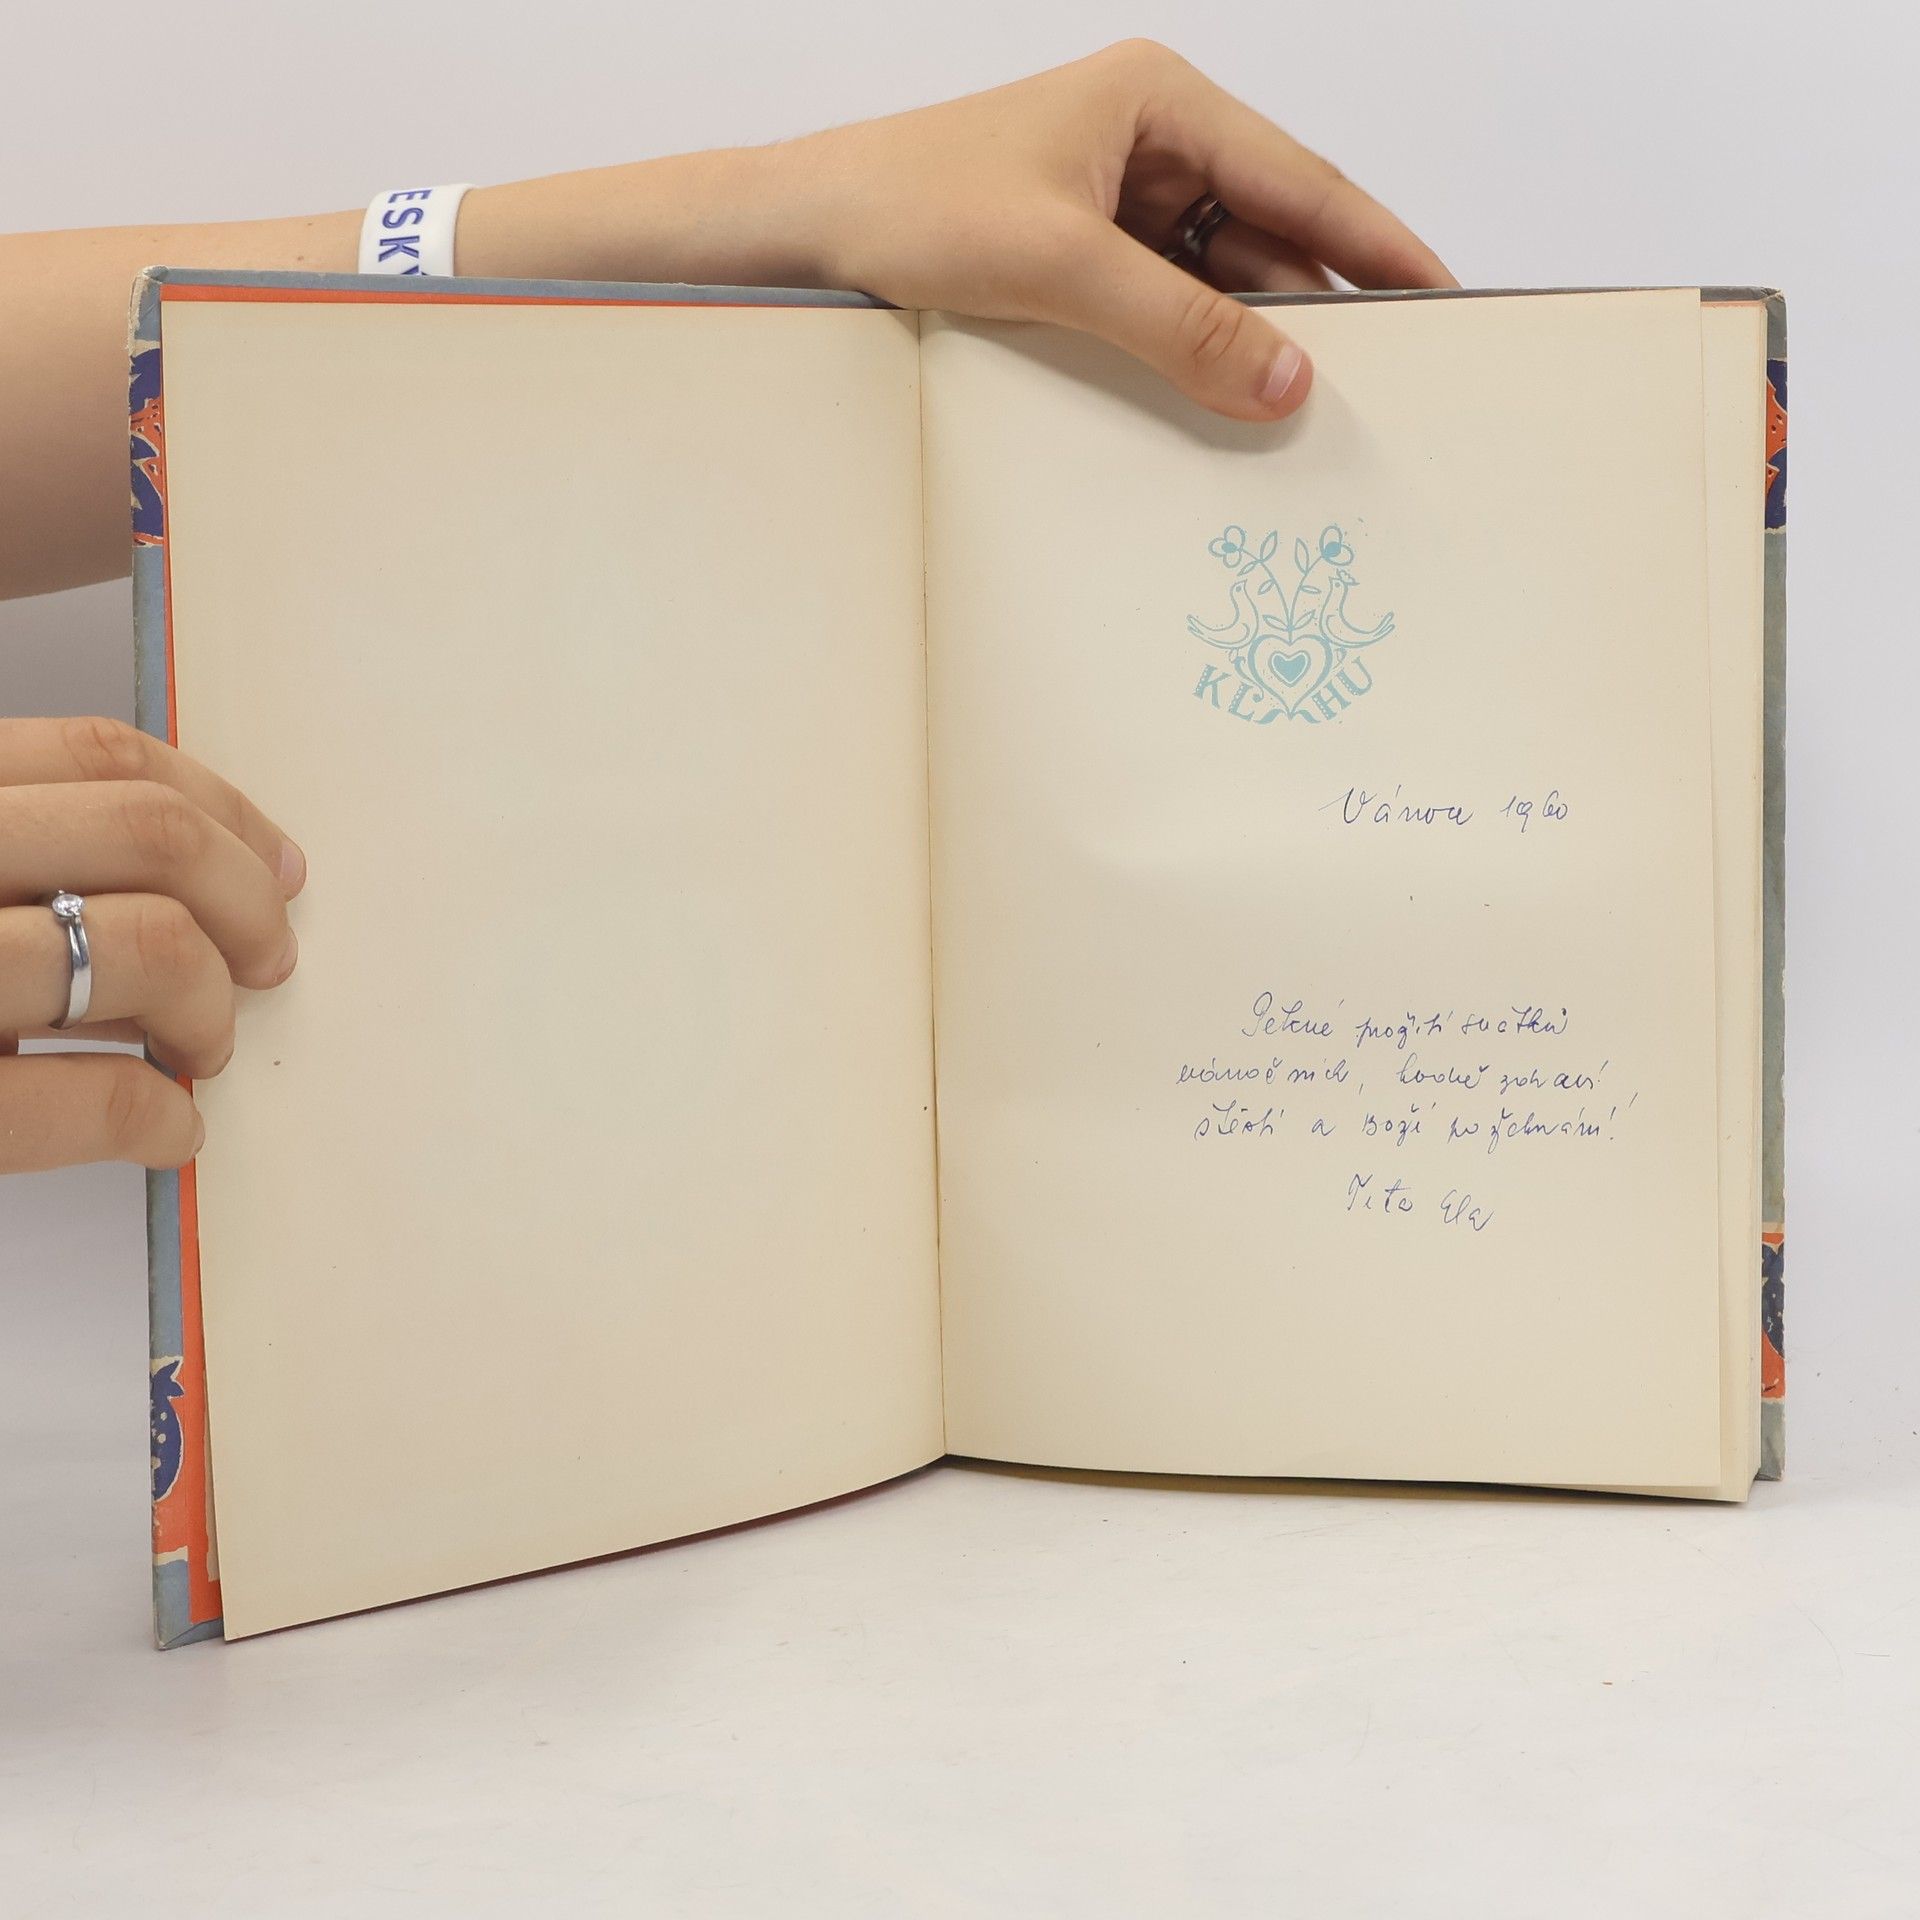 ESK
KLHU
Vánoce 1960
Pěkné prožití svátků
vánočních, hodně zdraví
štěstí a Boží požehnání!
Teta Ela